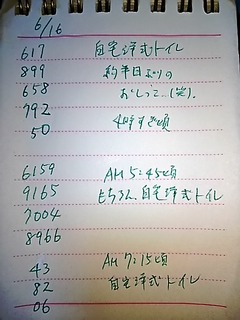 6/16
617 自宅洋式トイレ
899 約半日ぶりの
658 おしっこ…(笑).
792 4時すぎ頃
50
6159 AM 5:45頃
9165 もちろん、自宅洋式トイレ
7004
8966
43 AM 7:15頃
82 自宅洋式トイレ
06